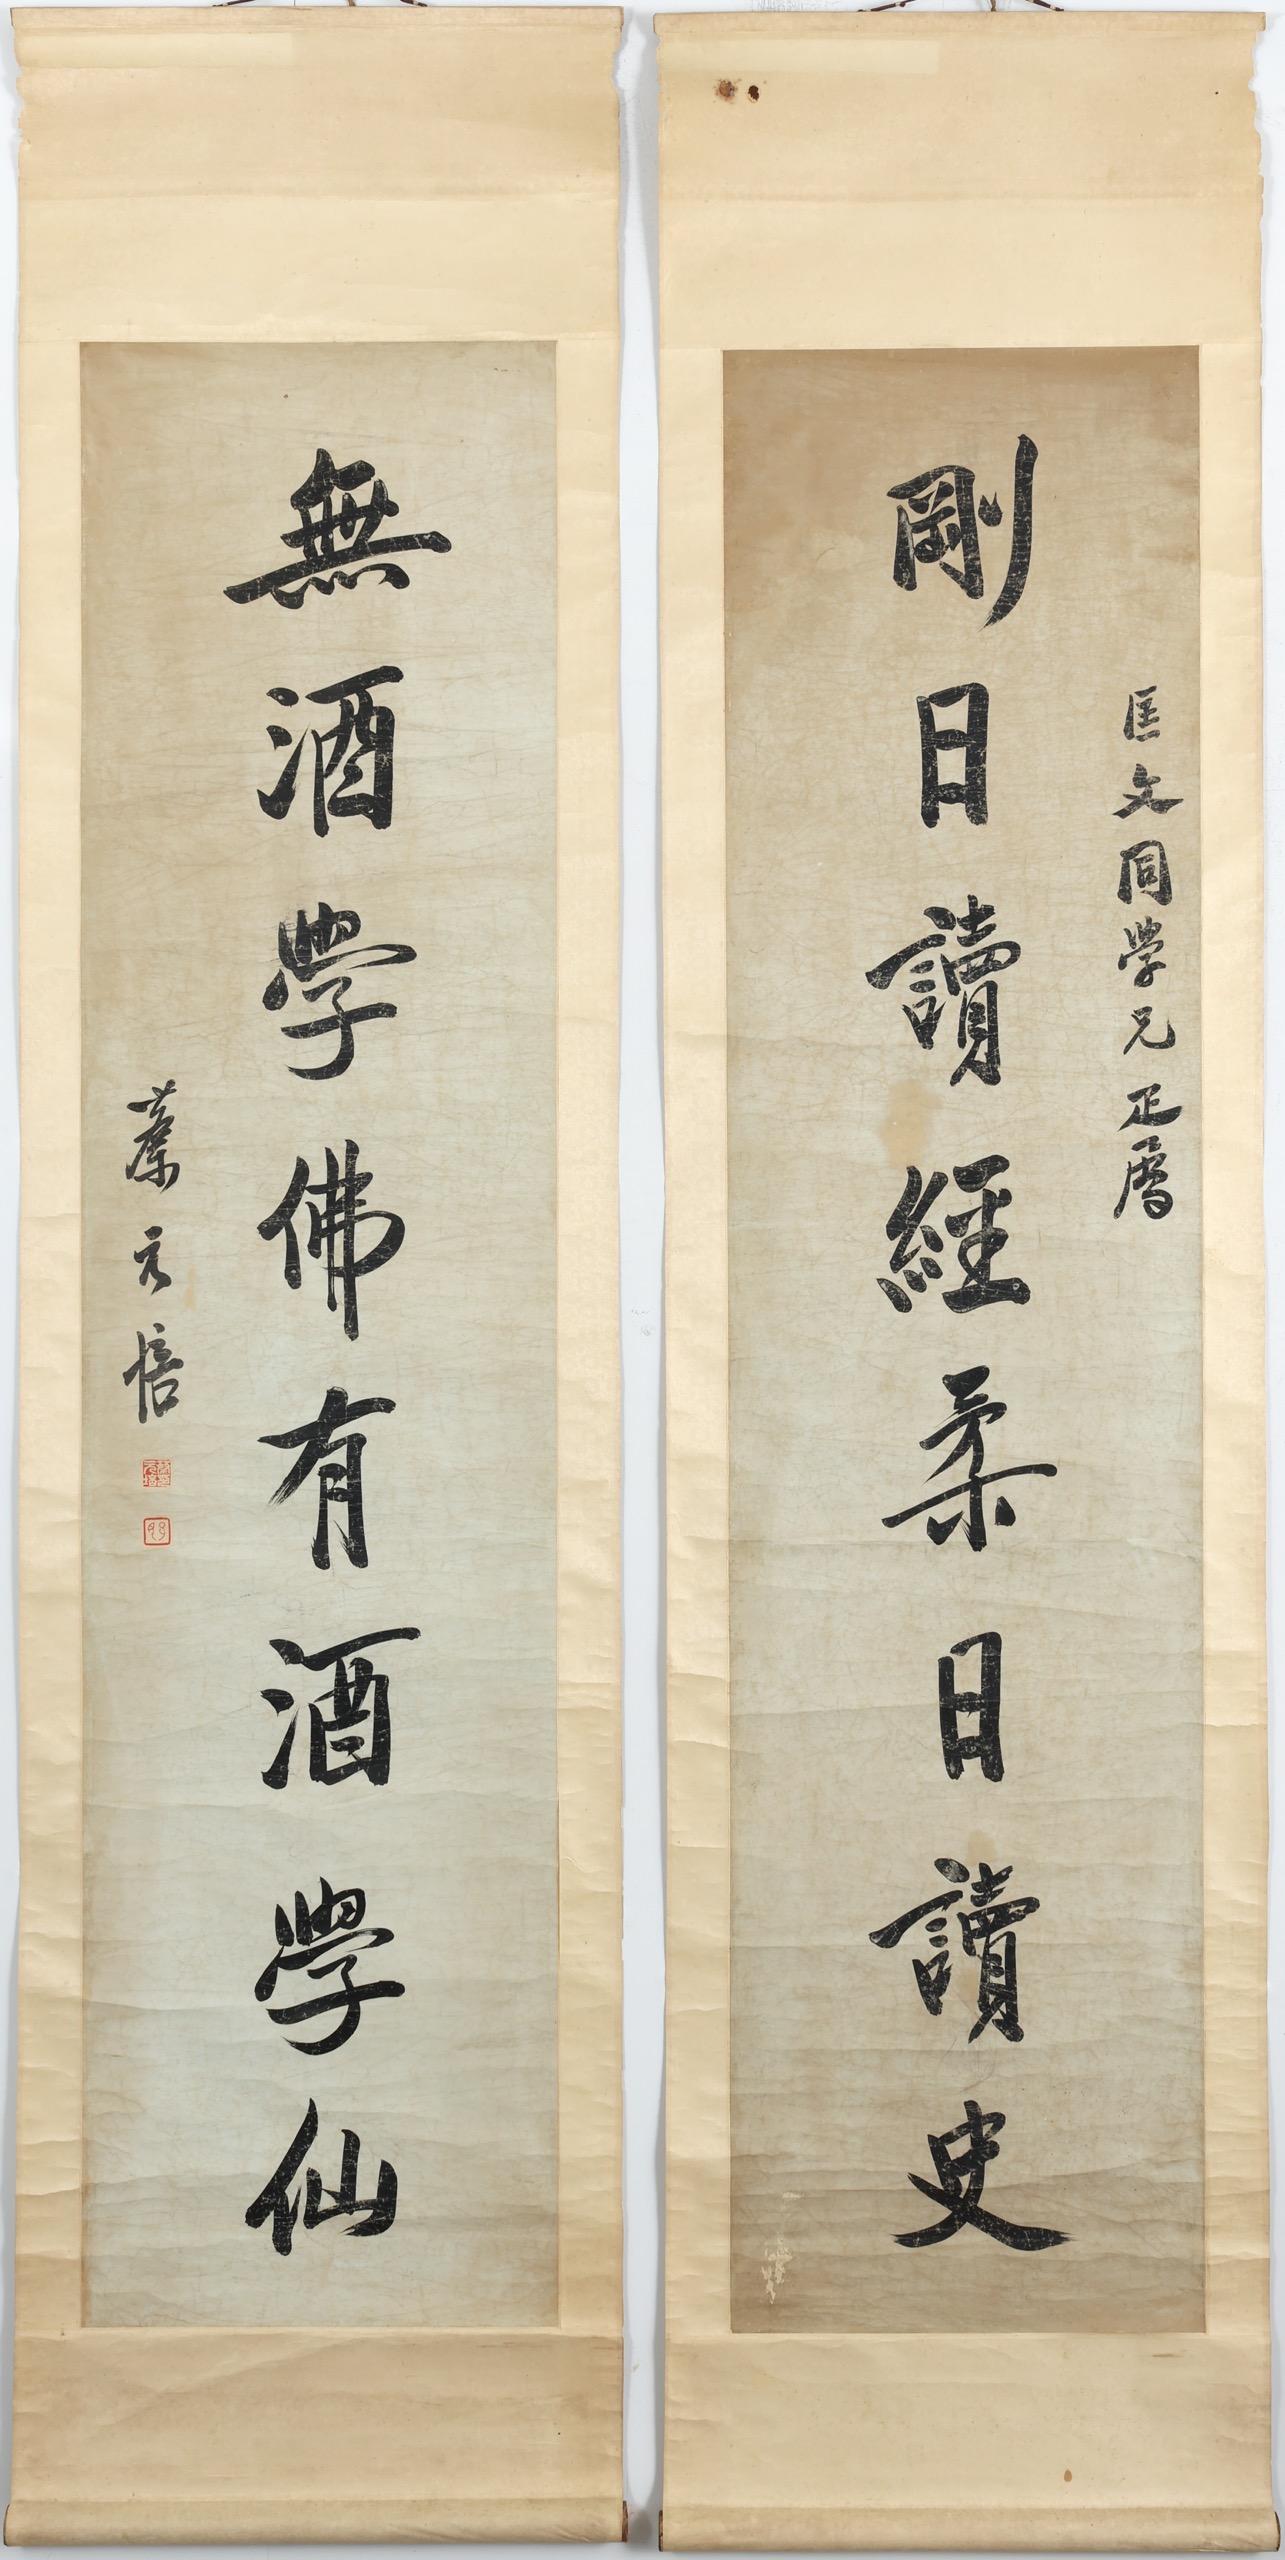 匡文同学兄正属
剛日讀經柔日讀史
無酒學佛有酒學仙
蔡元培